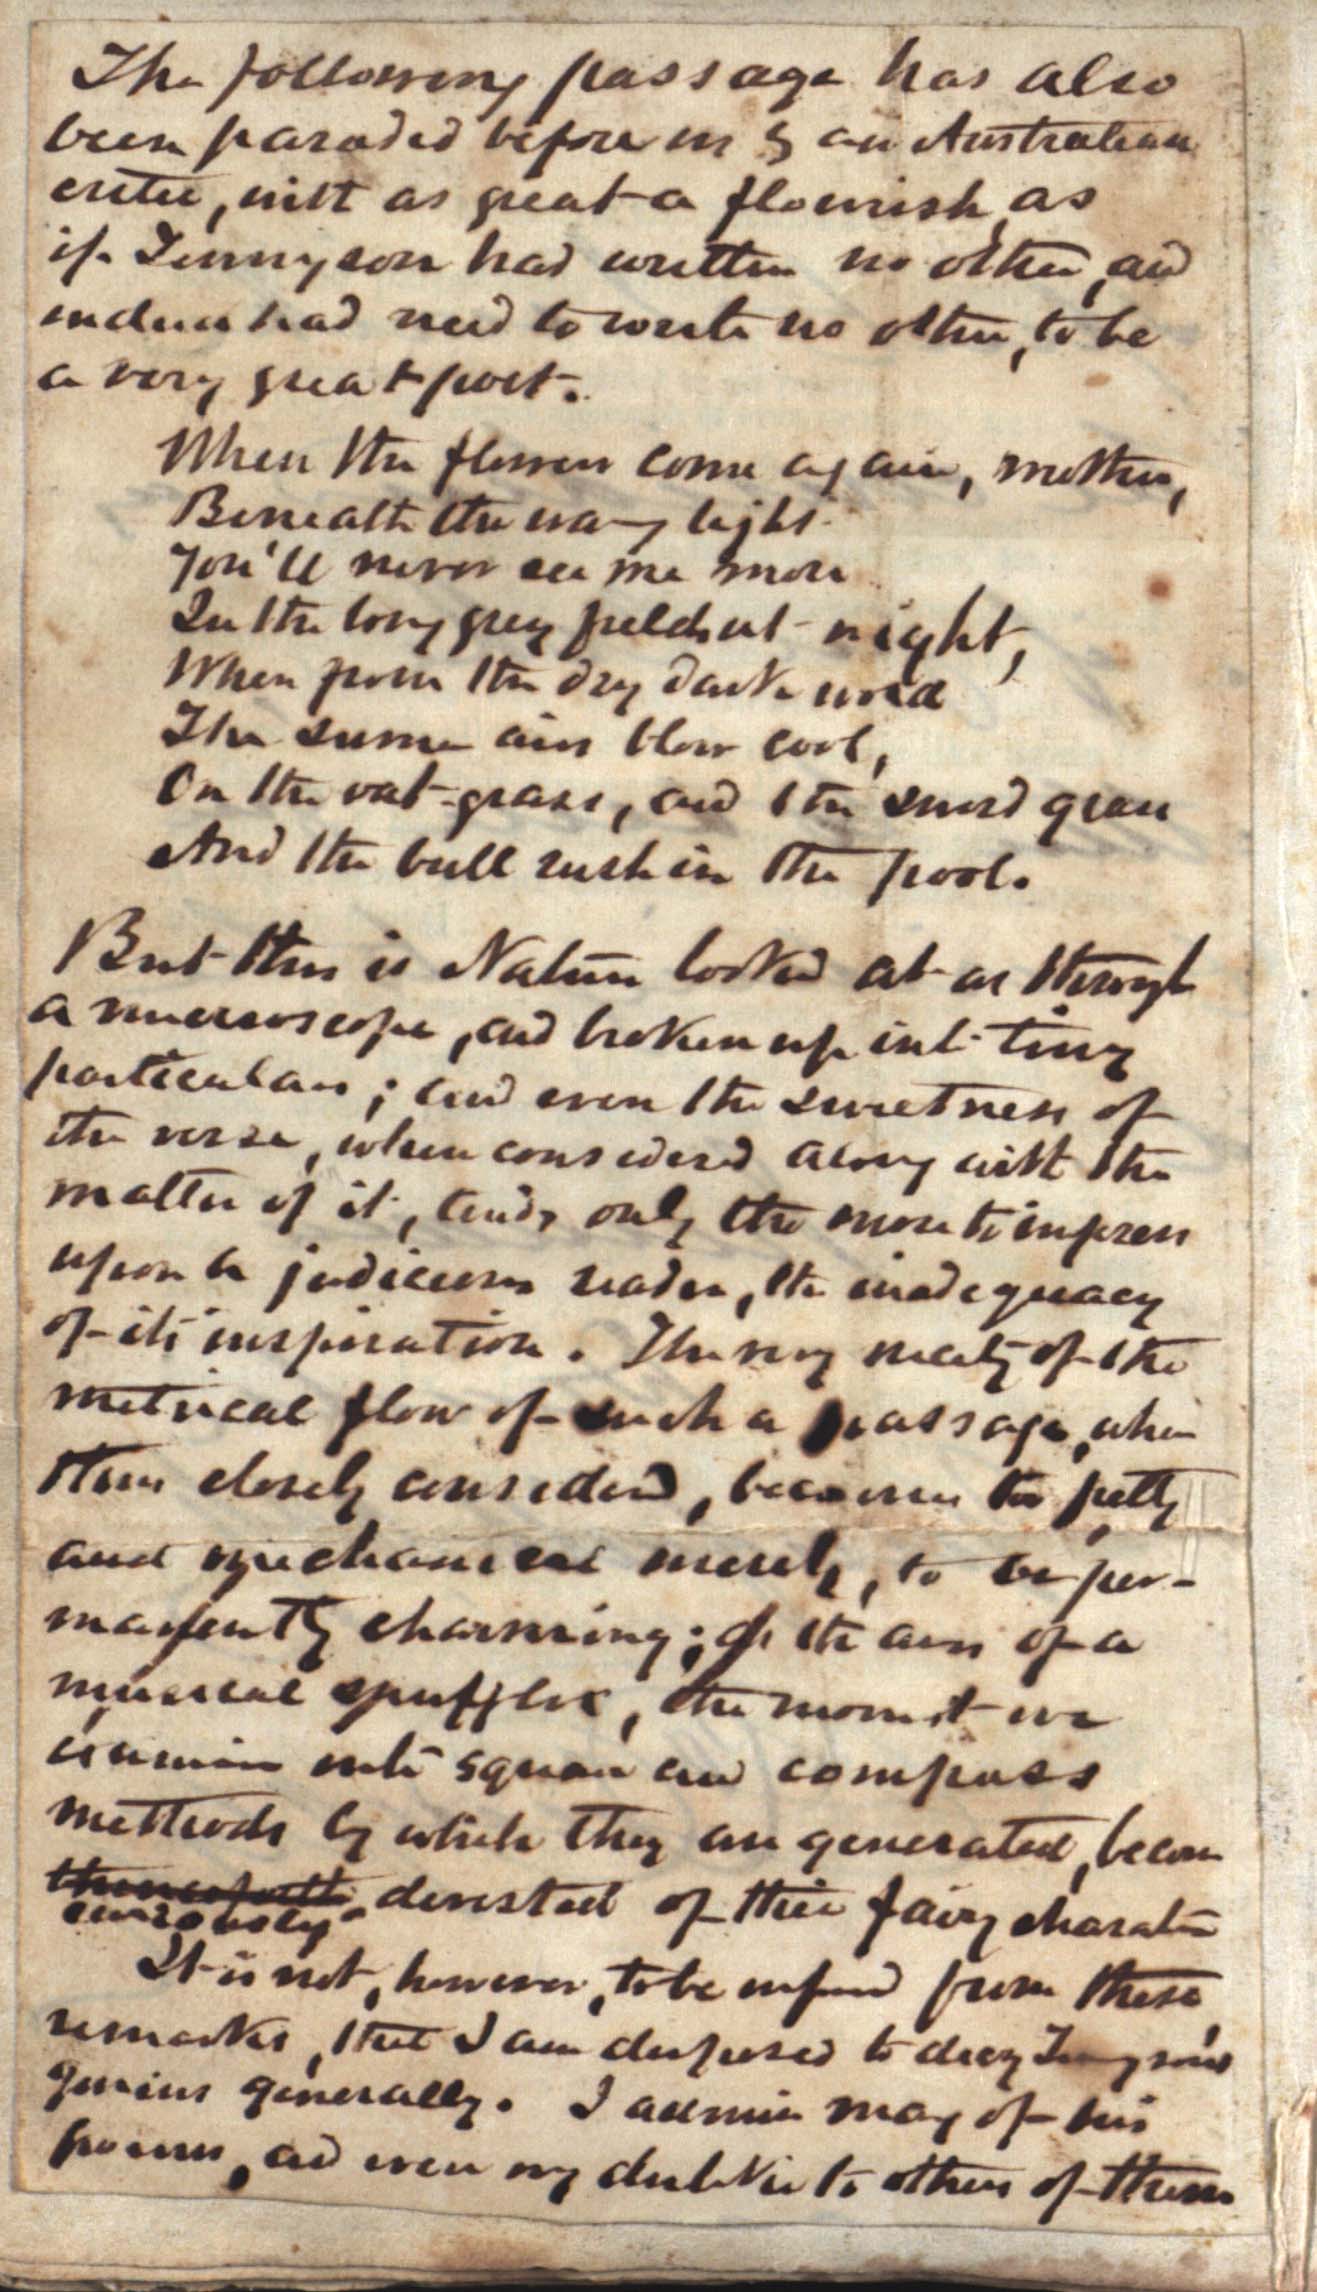 The following passage has also
been paraded before us by an Australian
critic, with as great a flourish as
if Tennyson had written no other, and
indeed had need to write no other, to be
a very great poet.
When the flowers come again, mother,
Beneath the waning light
You'll never see me more
In the long grey fields at night,
When from the dry dark wold
The summer airs blow cool,
On the oat-grass, and the sword grass
And the bull rush in the pool.
But this is Nature looked at as through
a microscope, and broken up into tiny
particulars; and even the sweetness of
the verse, when considered along with the
matter of it, tends only the more to impress
upon a judicious reader, the inadequacy
of its inspiration. The very nicety of the
metrical flow of such a passage, when
thus closely considered, becomes too petty
and mechanical merely, to be per-
manently charming; as the airs of a
musical snuff box, the moment we
examine into square and compass
methods by which they are generated, become
thenceforth divested of their fairy character
curiously
It is not, however, to be inferred from these
remarks, that I am disposed to decry Tennyson's
genius generally. I admire many of his
poems, and even my dislike to others of them